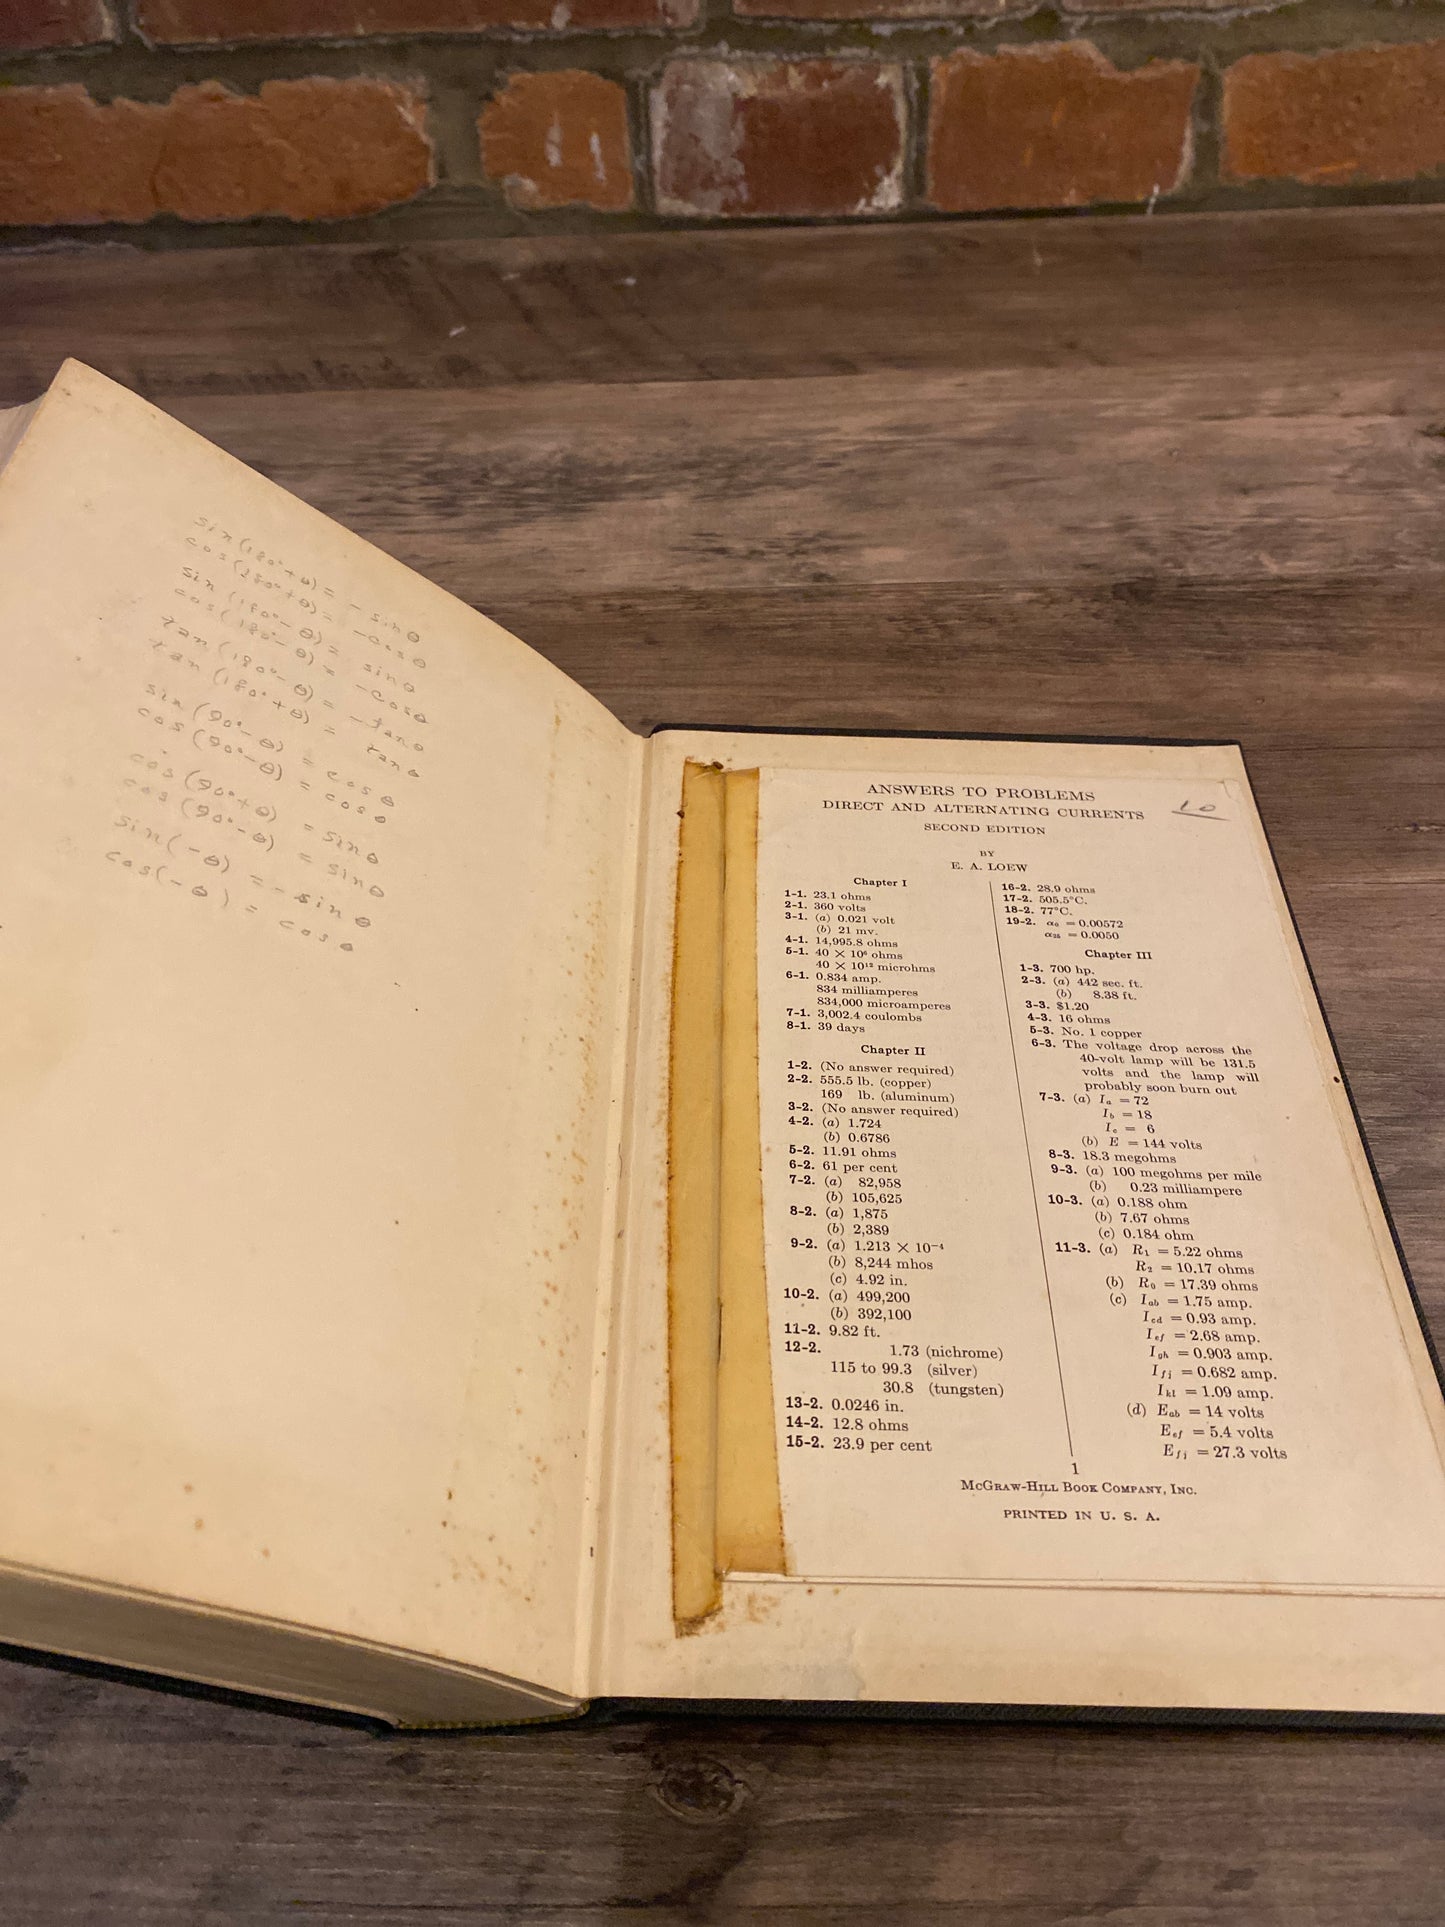 sin(180°+θ) = - sinθ
cos(180°+θ) = -cosθ
sin (180°-θ) = sinθ
cos(180°-θ) = -cosθ
tan(180°-θ) = -tanθ
tan (180°+θ) = tanθ
sin (90°-θ) = cosθ
cos (90°-θ) = cosθ
cos (90°+θ) = sinθ
cos (90°-θ) = sinθ
sin(-θ) = -sinθ
cos(-θ) = cosθ
ANSWERS TO PROBLEMS
DIRECT AND ALTERNATING CURRENTS
10
SECOND EDITION
BY
E. A. LOEW
Chapter I
1-1. 23.1 ohms
2-1. 360 volts
3-1. (a) 0.021 volt
(b) 21 mv.
4-1. 14,995.8 ohms
5-1. 40 × 10⁶ ohms
40 × 10¹² microhms
6-1. 0.834 amp.
834 milliamperes
834,000 microamperes
7-1. 3,002.4 coulombs
8-1. 39 days
Chapter II
1-2. (No answer required)
2-2. 555.5 lb. (copper)
169 lb. (aluminum)
3-2. (No answer required)
4-2. (a) 1.724
(b) 0.6786
5-2. 11.91 ohms
6-2. 61 per cent
7-2. (a) 82,958
(b) 105,625
8-2. (a) 1,875
(b) 2,389
9-2. (a) 1.213 × 10⁻⁴
(b) 8,244 mhos
(c) 4.92 in.
10-2. (a) 499,200
(b) 392,100
11-2. 9.82 ft.
12-2. 1.73 (nichrome)
115 to 99.3 (silver)
30.8 (tungsten)
13-2. 0.0246 in.
14-2. 12.8 ohms
15-2. 23.9 per cent
16-2. 28.9 ohms
17-2. 505.5°C.
18-2. 77°C.
19-2. α₀ = 0.00572
α₂₅ = 0.0050
Chapter III
1-3. 700 hp.
2-3. (a) 442 sec. ft.
(b) 8.38 ft.
3-3. $1.20
4-3. 16 ohms
5-3. No. 1 copper
6-3. The voltage drop across the
40-volt lamp will be 131.5
volts and the lamp will
probably soon burn out
7-3. (a) Iₐ = 72
I_b = 18
I_c = 6
(b) E = 144 volts
8-3. 18.3 megohms
9-3. (a) 100 megohms per mile
(b) 0.23 milliampere
10-3. (a) 0.188 ohm
(b) 7.67 ohms
(c) 0.184 ohm
11-3. (a) R₁ = 5.22 ohms
R₂ = 10.17 ohms
(b) R₀ = 17.39 ohms
(c) I_ab = 1.75 amp.
I_cd = 0.93 amp.
I_ef = 2.68 amp.
I_gh = 0.903 amp.
I_fj = 0.682 amp.
I_kl = 1.09 amp.
(d) E_ab = 14 volts
E_ef = 5.4 volts
E_fj = 27.3 volts
1
McGraw-Hill Book Company, Inc.
PRINTED IN U. S. A.